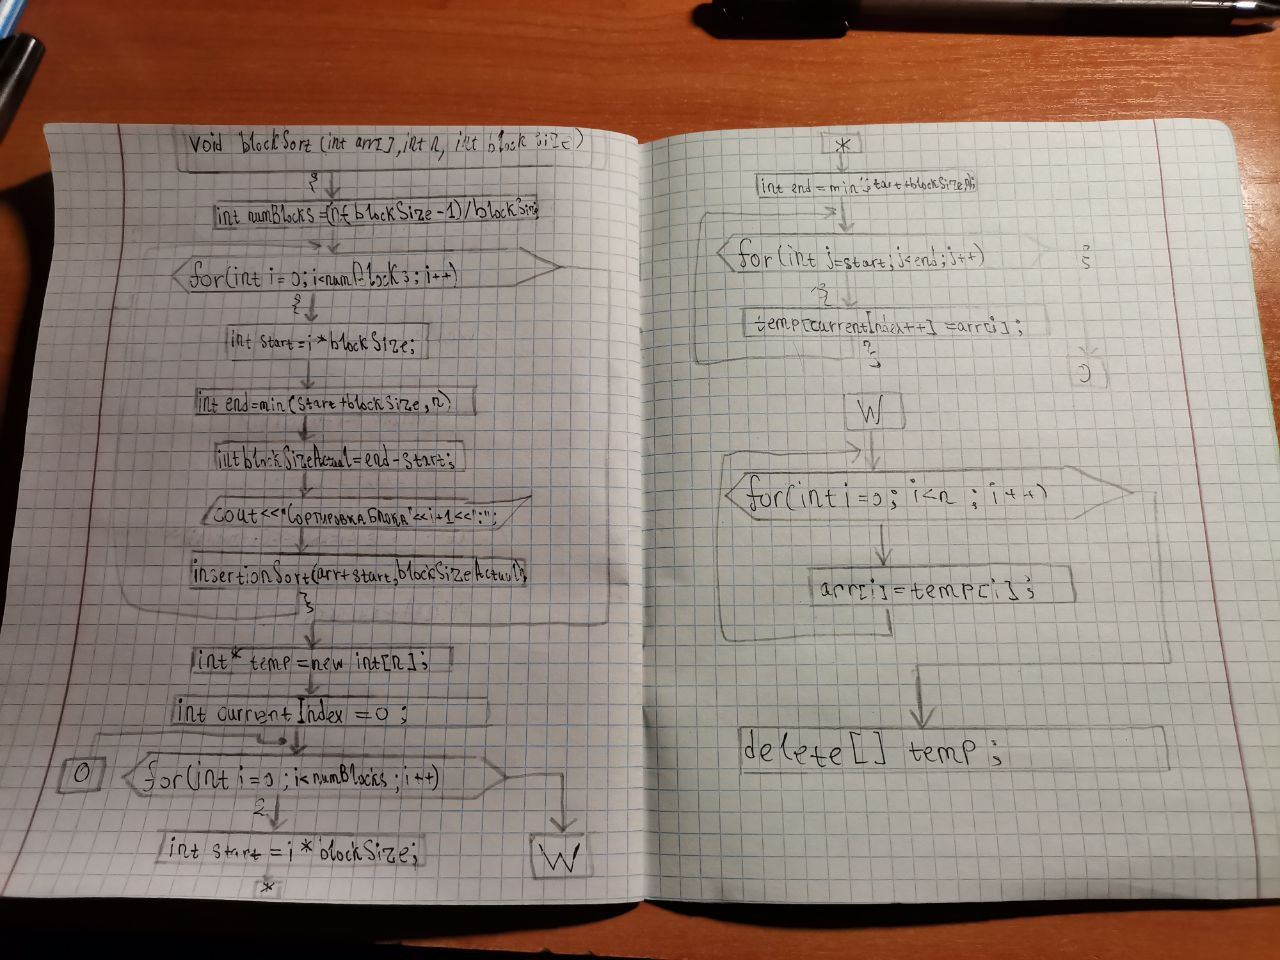 void blockSort (int arr[], int n, int blockSize)
{
int numBlocks = (n+blockSize-1)/blockSize;
for(int i=0; i<numBlocks; i++)
{
int start=i*blockSize;
int end=min(start+blockSize,n)
int blockSizeActual=end-start;
cout<<"Сортировка блока"<<i+1<<":";
insertionSort(arr+start,blockSizeActual);
}
int* temp=new int[n];
int currentIndex =0;
O
for(int i=0; i<numBlocks; i++)
{
int start=i*blockSize;
W
*
*
int end=min(start+blockSize,n);
for(int j=start;j<end;j++)
}
{
temp[currentIndex++] =arr[j];
}
O
W
for(int i=0; i<n ; i++)
arr[i]=temp[i];
delete[] temp;